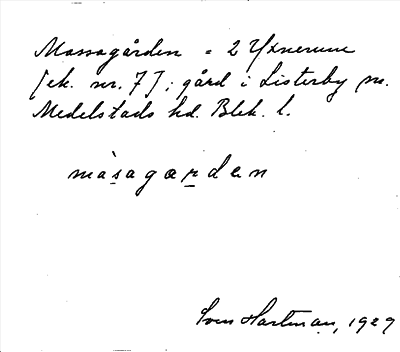 Massagården = 2 Yxnerum
[ek. nr. 7]; gård i Listerby sn.
Medelstads hd. Blek. l.
màsagarden
Sven Hartman, 1929